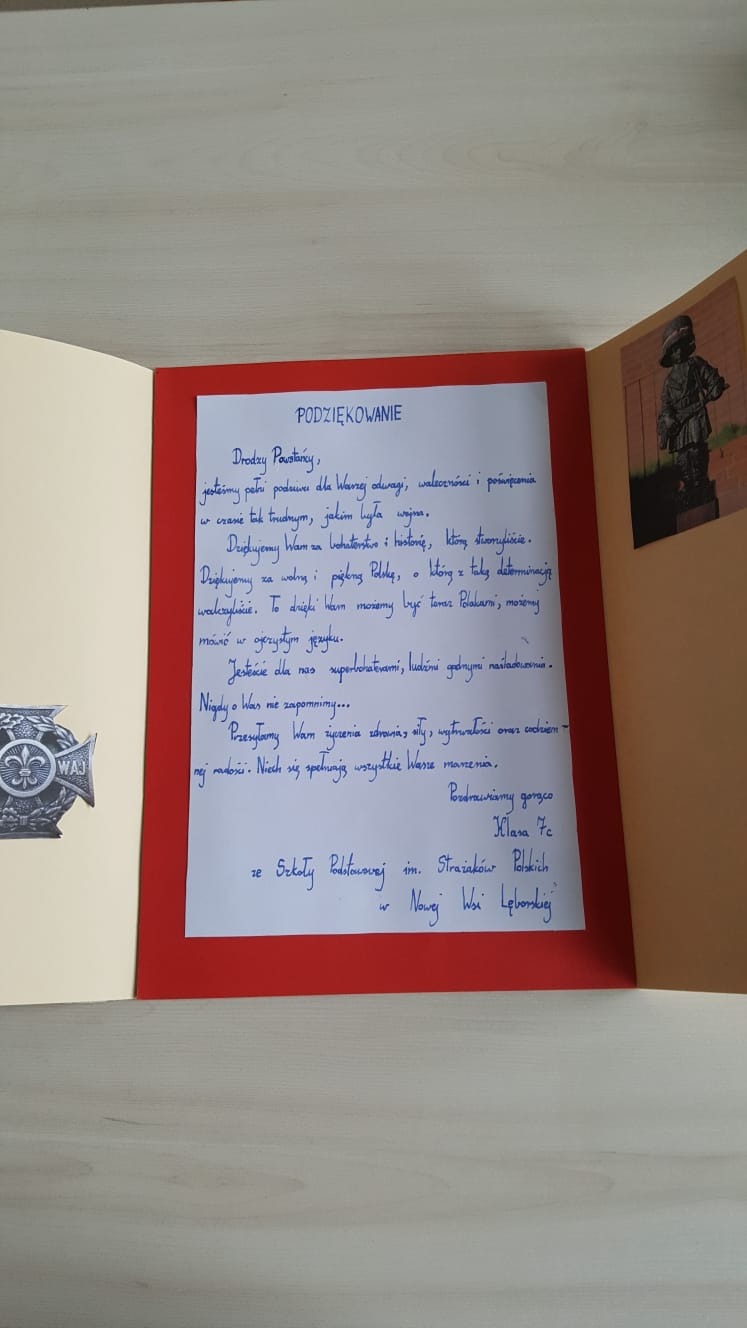 PODZIĘKOWANIE
Drodzy Powstańcy,
jesteśmy pełni podziwu dla Waszej odwagi, waleczności i poświęcenia
w czasie tak trudnym, jakim była wojna.
Dziękujemy Wam za bohaterstwo i historię, którą stworzyliście.
Dziękujemy za wolną i piękną Polskę, o którą z taką determinacją
walczyliście. To dzięki Wam możemy być teraz Polakami, możemy
mówić w ojczystym języku.
Jesteście dla nas superbohaterami, ludźmi godnymi naśladowania.
Nigdy o Was nie zapomnimy...
Przesyłamy Wam życzenia zdrowia, siły, wytrwałości oraz codzien-
nej radości. Niech się spełniają wszystkie Wasze marzenia.
Pozdrawiamy gorąco
Klasa 7c
ze Szkoły Podstawowej im. Strażaków Polskich
w Nowej Wsi Lęborskiej
WAJ